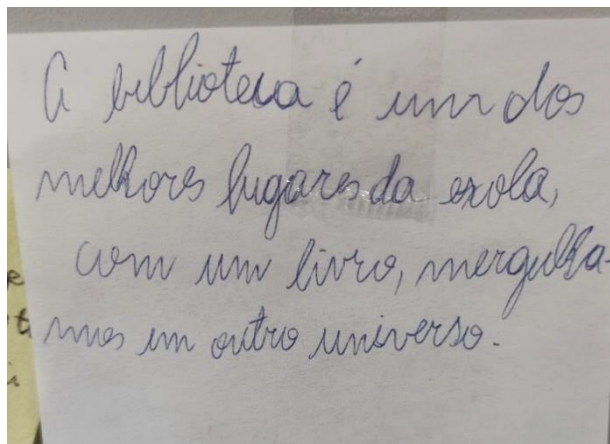 A biblioteca é um dos
melhores lugares da escola,
com um livro, mergulha-
mos em outro universo.